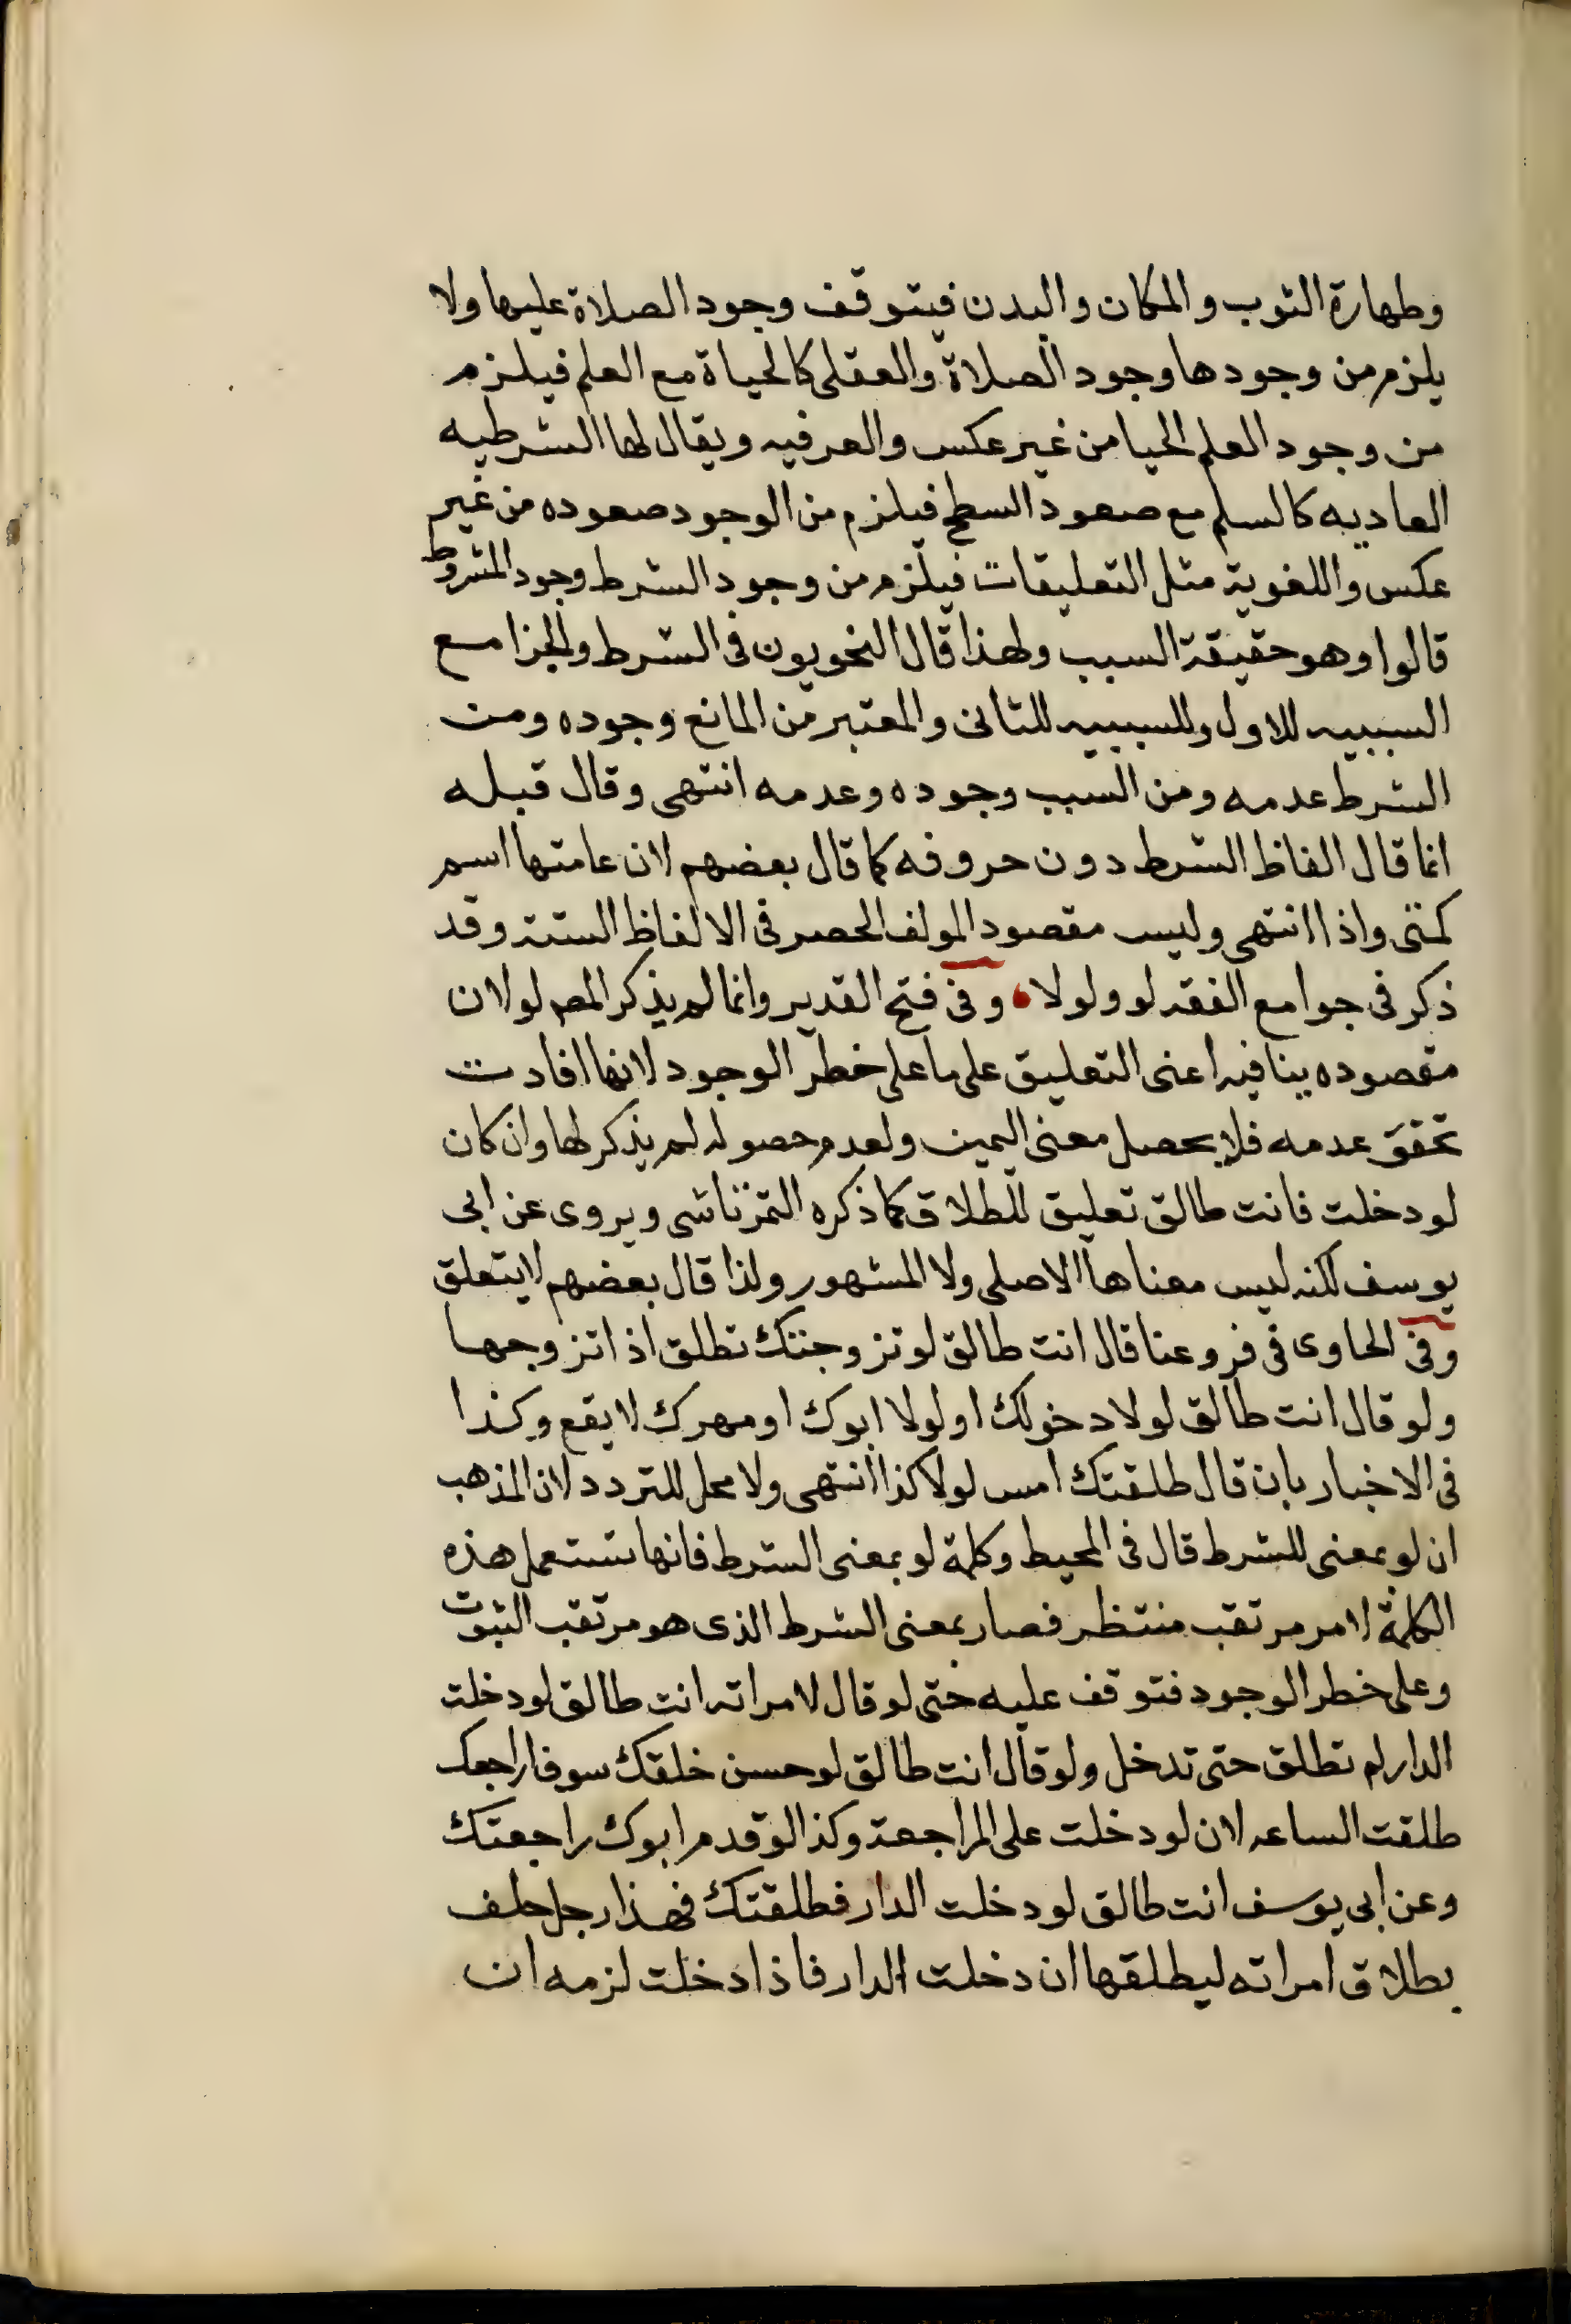 وطهارة الثوب والمكان والبدن فيتوقف وجود الصلاة عليها ولا
يلزم من وجودها وجود الصلاة والعقلى كالحياة مع العلم فيلزم
من وجود العلم الحيا من غير عكس والعرفيه ويقال لها الشرطيه
العاديه كالسلم مع صعود السطح فيلزم من الوجود صعوده من غير
عكس واللغوية مثل التعليقات فيلزم من وجود الشرط وجود المشروط
قالوا وهو حقيقة السبب ولهذا قال النحويون فى الشرط والجزا مع
السببيه للاول وللسببيه للثانى والمعتبر من المانع وجوده ومن
الشرط عدمه ومن السبب وجوده وعدمه انتهى وقال قبله
انما قال الفاظ الشرط دون حروفه كما قال بعضهم لان عامتها اسم
كمتى واذا انتهى وليس مقصود المولف الحصر فى الالفاظ الستة وقد
ذكر فى جوامع الفقه لو ولولا وفى فتح القدير وانما لم يذكر المص لو لان
مقصوده ينافيه اعنى التعليق على ما على خطر الوجود لانها افادت
تحقق عدمه فلا يحصل معنى اليمين ولعدم حصوله لم يذكر لها وان كان
لو دخلت فانت طالق تعليق للطلاق كما ذكره التمرتاشى ويروى عن ابى
يوسف لكنه ليس معناها الاصلى ولا المشهور ولذا قال بعضهم لا يتعلق
وفى الحاوى فى فروعنا قال انت طالق لو تزوجتك تطلق اذا تزوجها
ولو قال انت طالق لولا دخولك او لولا ابوك او مهرك لا يقع وكذا
فى الاخبار بان قال طلقتك امس لولا كذا انتهى ولا محل للتردد لان المذهب
ان لو بمعنى للشرط قال فى المحيط وكلمة لو بمعنى الشرط فانها تستعمل هذه
الكلمة لامر مرتقب منتظر فصار بمعنى الشرط الذى هو مرتقب الثبوت
وعلى خطر الوجود فتوقف عليه حتى لو قال لامراته انت طالق لو دخلت
الدار لم تطلق حتى تدخل ولو قال انت طالق لو حسن خلقك سوف اراجعك
طلقت الساعه لان لو دخلت على المراجعة وكذا لو قدم ابوك راجعتك
وعن ابى يوسف انت طالق لو دخلت الدار فطلقتك فهذا رجل حلف
بطلاق امراته ليطلقها ان دخلت الدار فاذا دخلت لزمه ان